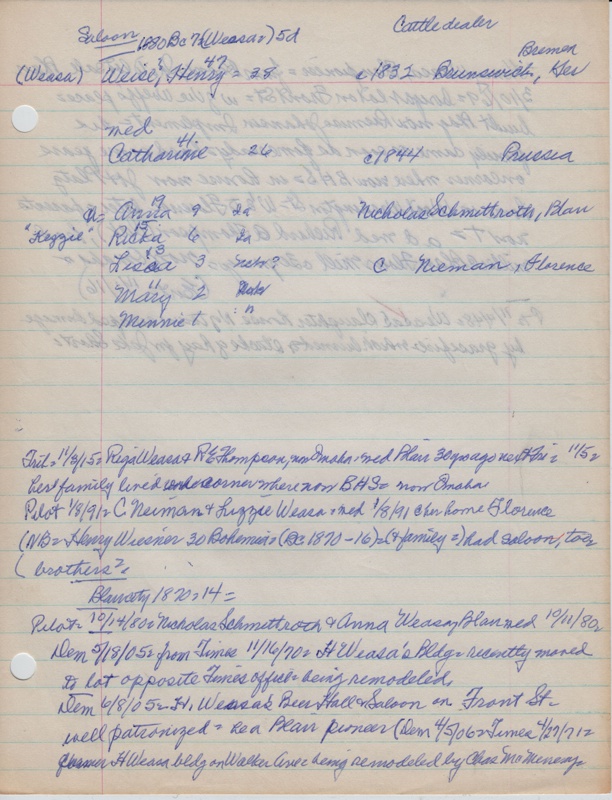 Saloon 1880 Bc 72 (Weasa=) 5d Cattle dealer
(Weasa) Weise, Henry = 38 47 c1832 Brunswick, Ger Bremen
med
Catharine 26 41 c1844 Prussia
Anna 9 19 Ia Nicholas Schmettroth, Blair
"Kezzie" Ricka 6 15 Ia
Lissa 3 13 Nebr? C Nieman, Florence
Mary 2 11
Minnie 1 "
Trib= 11/3/15= Weasa & R E Thompson, now Omaha= med Blair 30 yrs ago next Fri= 11/5=
her family lived corner where now BHS= now Omaha
Pilot 1/8/91= C Neiman & Lizzie Weasa= med 1/8/91 @ her home Florence
(NB= Henry Wiesner 30 Bohemia= (Bc 1870-16)= (& family=) had saloon, too;
( brothers?,
Blair city 1870=14=
Pilot= 10/14/80= Nicholas Schmettroth & Anna Weasa, Blair med 10/11/80=
Dem 5/18/05= from Times 11/16/70= H Weasa's Bldg= recently moved
to lot opposite Times office= being remodeled,
Dem 6/8/05= H. Weasa's Beer Hall & Saloon on Front St=
well patronized = a Blair pioneer (Dem 4/5/06= Times 4/27/71=
former H Weasa bldg on Walker Ave= being remodeled by Chas McMenemy=